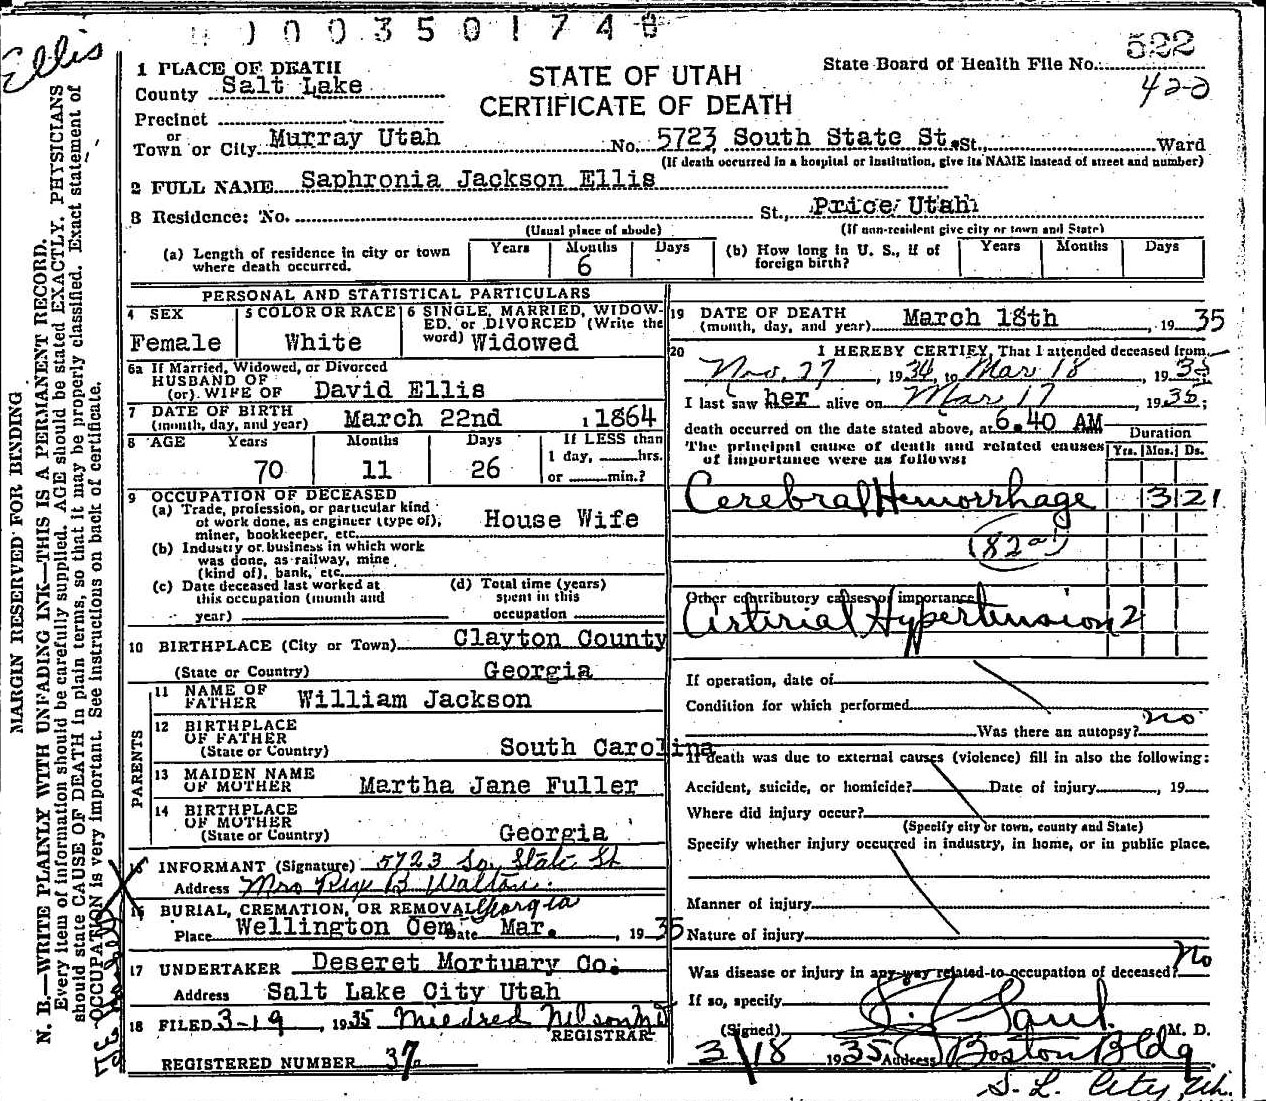 0 0 3 5 0 1 7 4
Ellis
522
422
1 PLACE OF DEATH
County Salt Lake
STATE OF UTAH
CERTIFICATE OF DEATH
State Board of Health File No.
Precinct
or
Town or City Murray Utah No. 5723 South State St. St., Ward
(If death occurred in a hospital or institution, give its NAME instead of street and number)
2 FULL NAME Saphronia Jackson Ellis
3 Residence: No. St., Price Utah
(Usual place of abode) (If non-resident give city or town and State)
(a) Length of residence in city or town where death occurred. Years Months 6 Days
(b) How long in U. S., if of foreign birth? Years Months Days
PERSONAL AND STATISTICAL PARTICULARS
4 SEX Female
5 COLOR OR RACE White
6 SINGLE, MARRIED, WIDOWED, or DIVORCED (Write the word) Widowed
6a If Married, Widowed, or Divorced
HUSBAND OF
(or) WIFE OF David Ellis
7 DATE OF BIRTH
(month, day, and year) March 22nd, 1864
8 AGE Years 70 Months 11 Days 26 If LESS than 1 day, hrs. or min.?
9 OCCUPATION OF DECEASED
(a) Trade, profession, or particular kind of work done, as engineer (type of), miner, bookkeeper, etc. House Wife
(b) Industry or business in which work was done, as railway, mine (kind of), bank, etc.
(c) Date deceased last worked at this occupation (month and year)
(d) Total time (years) spent in this occupation
10 BIRTHPLACE (City or Town) Clayton County
(State or Country) Georgia
PARENTS
11 NAME OF FATHER William Jackson
12 BIRTHPLACE OF FATHER
(State or Country) South Carolina
13 MAIDEN NAME OF MOTHER Martha Jane Fuller
14 BIRTHPLACE OF MOTHER
(State or Country) Georgia
15 INFORMANT (Signature) 5723 So. State St
Address Mrs Rex B Walton
16 BURIAL, CREMATION, OR REMOVAL Georgia
Place Wellington Cem. Date Mar. , 1935
17 UNDERTAKER Deseret Mortuary Co.
Address Salt Lake City Utah
18 FILED 3-19, 1935 Mildred Nelson MD
REGISTRAR
REGISTERED NUMBER 37
19 DATE OF DEATH
(month, day, and year) March 18th, 1935
20 I HEREBY CERTIFY, That I attended deceased from
Nov. 27, 1934, to Mar 18, 1935
I last saw her alive on Mar 17, 1935;
death occurred on the date stated above, at 6.40 AM
The principal cause of death and related causes of importance were as follows:
Duration
Yrs. Mos. Ds.
Cerebral Hemorrhage 3 21
(82a)
Other contributory causes of importance
Arterial Hypertension 2
If operation, date of
Condition for which performed
Was there an autopsy? no
If death was due to external causes (violence) fill in also the following:
Accident, suicide, or homicide? Date of injury , 19
Where did injury occur?
(Specify city or town, county and State)
Specify whether injury occurred in industry, in home, or in public place.
Manner of injury
Nature of injury
Was disease or injury in any way related to occupation of deceased? No
If so, specify
(Signed) Paul M. D.
3/18 1935 Address Boston Bldg
S. L. City, Ut.
MARGIN RESERVED FOR BINDING
N. B.—WRITE PLAINLY WITH UNFADING INK—THIS IS A PERMANENT RECORD.
Every item of information should be carefully supplied. AGE should be stated EXACTLY. PHYSICIANS
should state CAUSE OF DEATH in plain terms, so that it may be properly classified. Exact statement of
OCCUPATION is very important. See instructions on back of certificate.